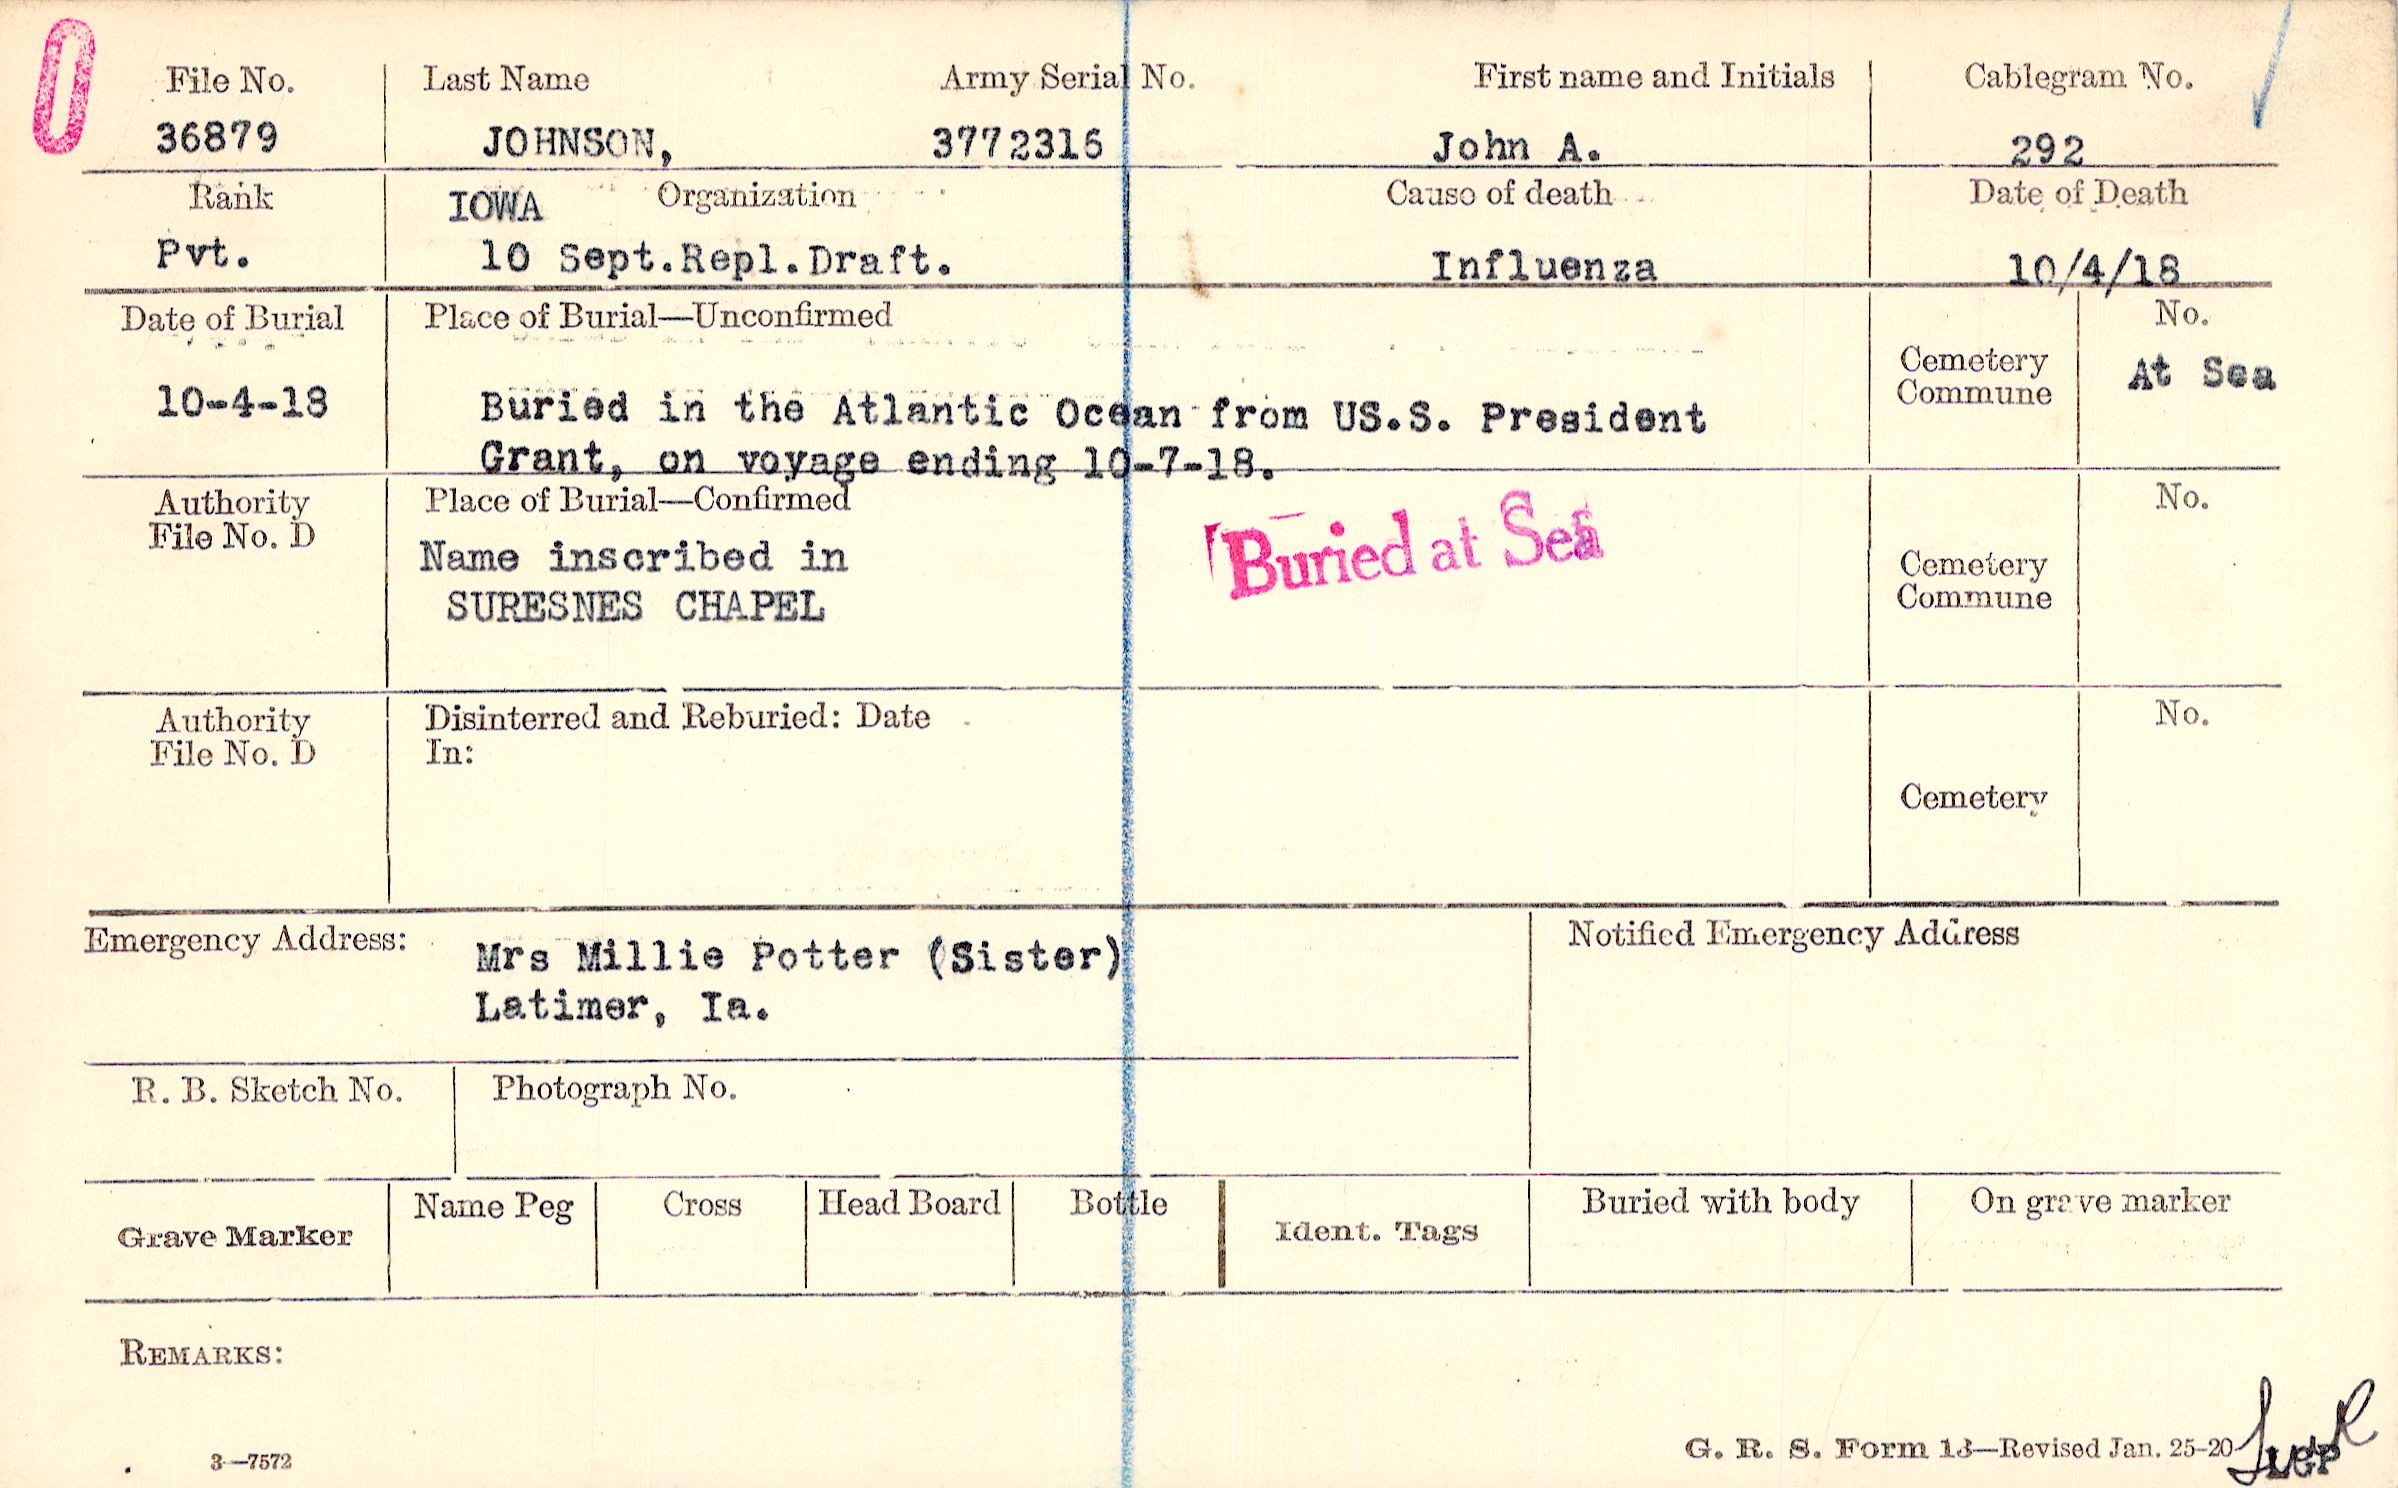 0
File No. Last Name Army Serial No. First name and Initials Cablegram No.
36879 JOHNSON, 3772316 John A. 292
Rank IOWA Organization Cause of death Date of Death
Pvt. 10 Sept.Repl.Draft. Influenza 10/4/18
Date of Burial Place of Burial—Unconfirmed No.
Cemetery
Commune At Sea
10-4-18 Buried in the Atlantic Ocean from US.S. President
Grant, on voyage ending 10-7-18.
Authority Place of Burial—Confirmed No.
File No. D
Name inscribed in Buried at Sea
SURESNES CHAPEL
Cemetery
Commune
Authority Disinterred and Reburied: Date No.
File No. D In:
Cemetery
Emergency Address: Mrs Millie Potter (Sister) Notified Emergency Address
Latimer, Ia.
R. B. Sketch No. Photograph No.
Grave Marker Name Peg Cross Head Board Bottle Ident. Tags Buried with body On grave marker
REMARKS:
3—7572 G. R. S. Form 13—Revised Jan. 25-20